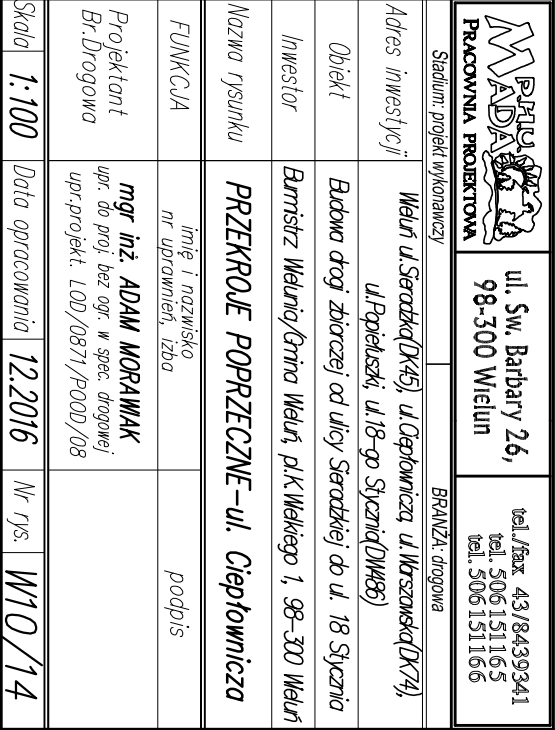 P.H.U.
MADA
PRACOWNIA PROJEKTOWA
ul. Sw. Barbary 26,
98-300 Wielun
tel./fax 43/8439341
tel. 506151165
tel. 506151166
Stadium: projekt wykonawczy
BRANŻA: drogowa
Adres inwestycji
Wieluń ul.Sieradzka(DK45), ul.Ciepłownicza, ul.Warszawska(DK74),
ul.Popiełuszki, ul.18-go Stycznia(DW486)
Obiekt
Budowa drogi zbiorczej od ulicy Sieradzkiej do ul. 18 Stycznia
Inwestor
Burmistrz Wielunia/Gmina Wieluń, pl.K.Wielkiego 1, 98-300 Wieluń
Nazwa rysunku
PRZEKROJE POPRZECZNE-ul. Ciepłownicza
FUNKCJA
imię i nazwisko
nr uprawnień, izba
podpis
Projektant
Br.Drogowa
mgr inż. ADAM MORAWIAK
upr. do proj. bez ogr. w spec. drogowej
upr.projekt. LOD/0871/POOD/08
Skala
1:100
Data opracowania
12.2016
Nr rys.
W10/14